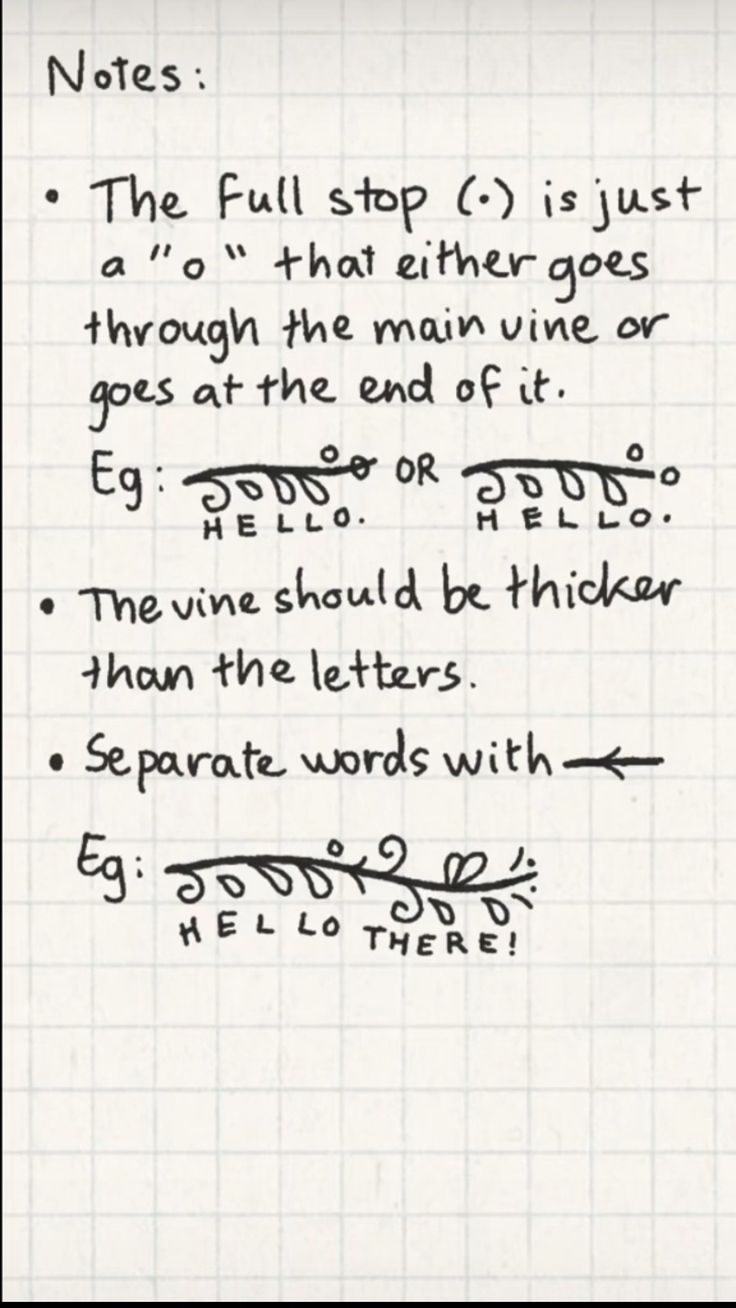 Notes:
• The full stop (.) is just
a "o" that either goes
through the main vine or
goes at the end of it.
Eg: OR
HELLO. HELLO.
• The vine should be thicker
than the letters.
• Separate words with
Eg:
HELLO THERE!